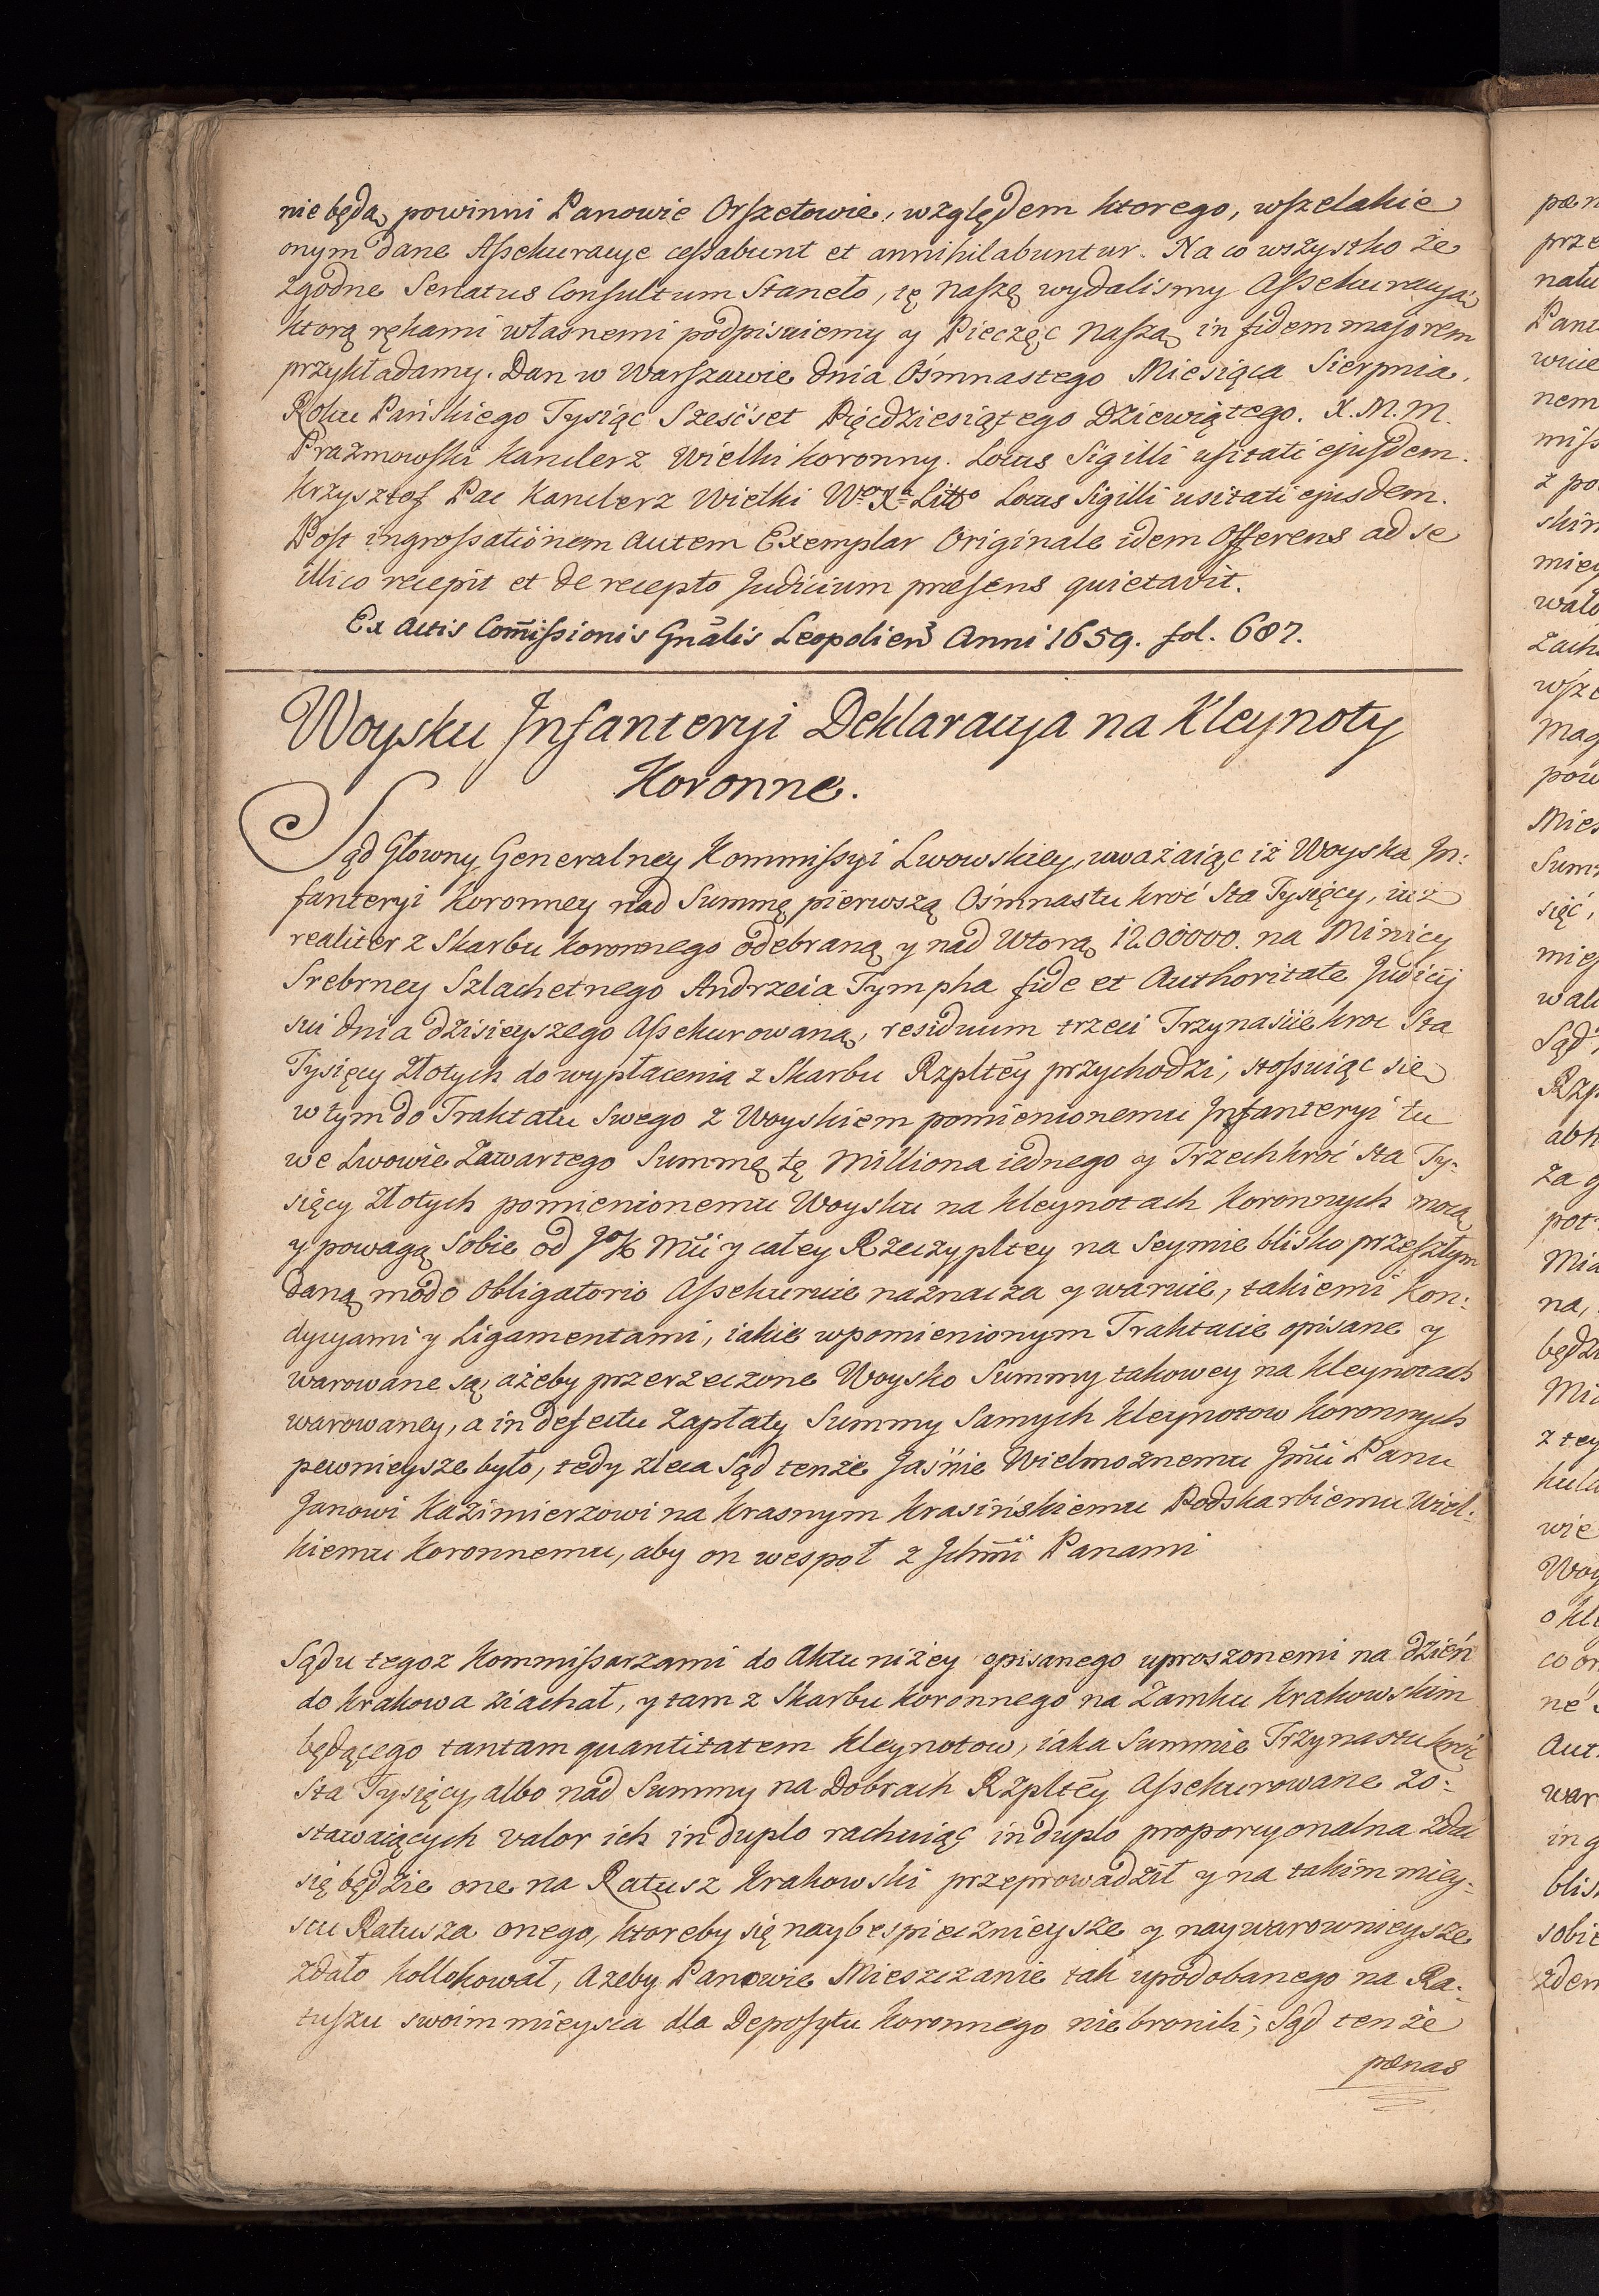 nie będą powinni Panowie Orszetowie, względem ktorego, wszelakie
onym dane Assekuracye cessabunt et annihilabuntur. Na co wszystko że
zgodne Senatus Consultum Staneło, tę naszę wydalismy Assekuracyą
ktorą rękami własnemi podpisuiemy y Pieczęc naszą in fidem majorem
przykładamy. Dan w Warszawie dnia Osmnastego Miesiąca Sierpnia.
Roku Pańskiego Tysiąc Szesćset Pięcdziesiątego Dziewiątego. X. M. M.
Prazmowski Kanclerz Wielki Koronny. Locus Sigilli usitati ejusdem.
Krzysztof Pac Kanclerz Wielki Wgo Xa Litto Locus Sigilli usitati ejusdem.
Post ingrossationem autem Exemplar Originale idem Offerens ad se
illico recepit et de recepto Judicium præsens quietavit.
Ex Actis Com̃issionis Gnãlis Leopolien̄ Anni 1659. fol. 687.
Woysku Infanteryi Deklaracyja na Kleynoty
Koronne.
Sąd Głowny Generalney Kommissyi Lwowskiey, uważaiąc iż Woyska In:
fanteryi Koronney nad Summę pierwszą Osmnastu kroć Sta Tysięcy, iuż
realiter z Skarbu Koronnego odebraną y nad wtorą 1200000. na Minicy
Srebrney Szlachetnego Andrzeia Tympha fide et Authoritate Judicij
sui dnia dzisieyszego Assekurowaną, residuum trzeci Trzynaście kroc Sta
Tysięcy Złotych do wypłacenia z Skarbu Rzpltey przychodzi, stossuiąc się
w tym do Traktatu swego z Woyskiem pomienionemu Infanteryi tu
we Lwowie Zawartego Summę tę Milliona iednego y Trzechkroć sta Ty:
sięcy Złotych pomienionemu Woysku na Kleynotach Koronnych mocą
y powagą sobie od JoK Mci y całey Rzeczypltey na Seymie blisko przeszłym
daną modo Obligatorio Assekuruie naznacza y waruie, takiemi Kon:
dycyami y Ligamentami, iakie w pomienionym Traktacie opisane y
warowane są, ażeby przerzeczone Woysko Summy takowey na Kleynotach
warowaney, a in defectu Zapłaty Summy Samych Kleynotow Koronnych
pewnieysze było, tedy zleca Sąd tenże Jaśnie Wielmożnemu Jm̃ci Panu
Janowi Kazimierzowi na Krasnym Krasińskiemu Podskarbiemu Wiel:
kiemu Koronnemu, aby on wespoł z Ichm̃ci Panami
Sądu tegoz Kommissarzami do Aktu niżey opisanego uproszonemi na dzień
do Krakowa ziachał, y tam z Skarbu Koronnego na Zamku Krakowskim
będącego tantam quantitatem Kleynotow, iaka Summie Trzynastu kroć
Sta Tysięcy, albo nad Summy na Dobrach Rzpltey Assekurowane zo:
stawaiących valor ich in duplo rachuiąc in duplo proporcyonalna zdac
się będzie one na Ratusz Krakowski przeprowadził y na takim miey:
scu Ratusza onego, ktoreby się naybespiecznieysze y naywarownieysze
zdało kollokował, Azeby Panowie Mieszczanie tak upodobanego na Ra:
tuszu swoim mieysca dla Deposytu Koronnego nie bronili, Sąd tenże
pœnas